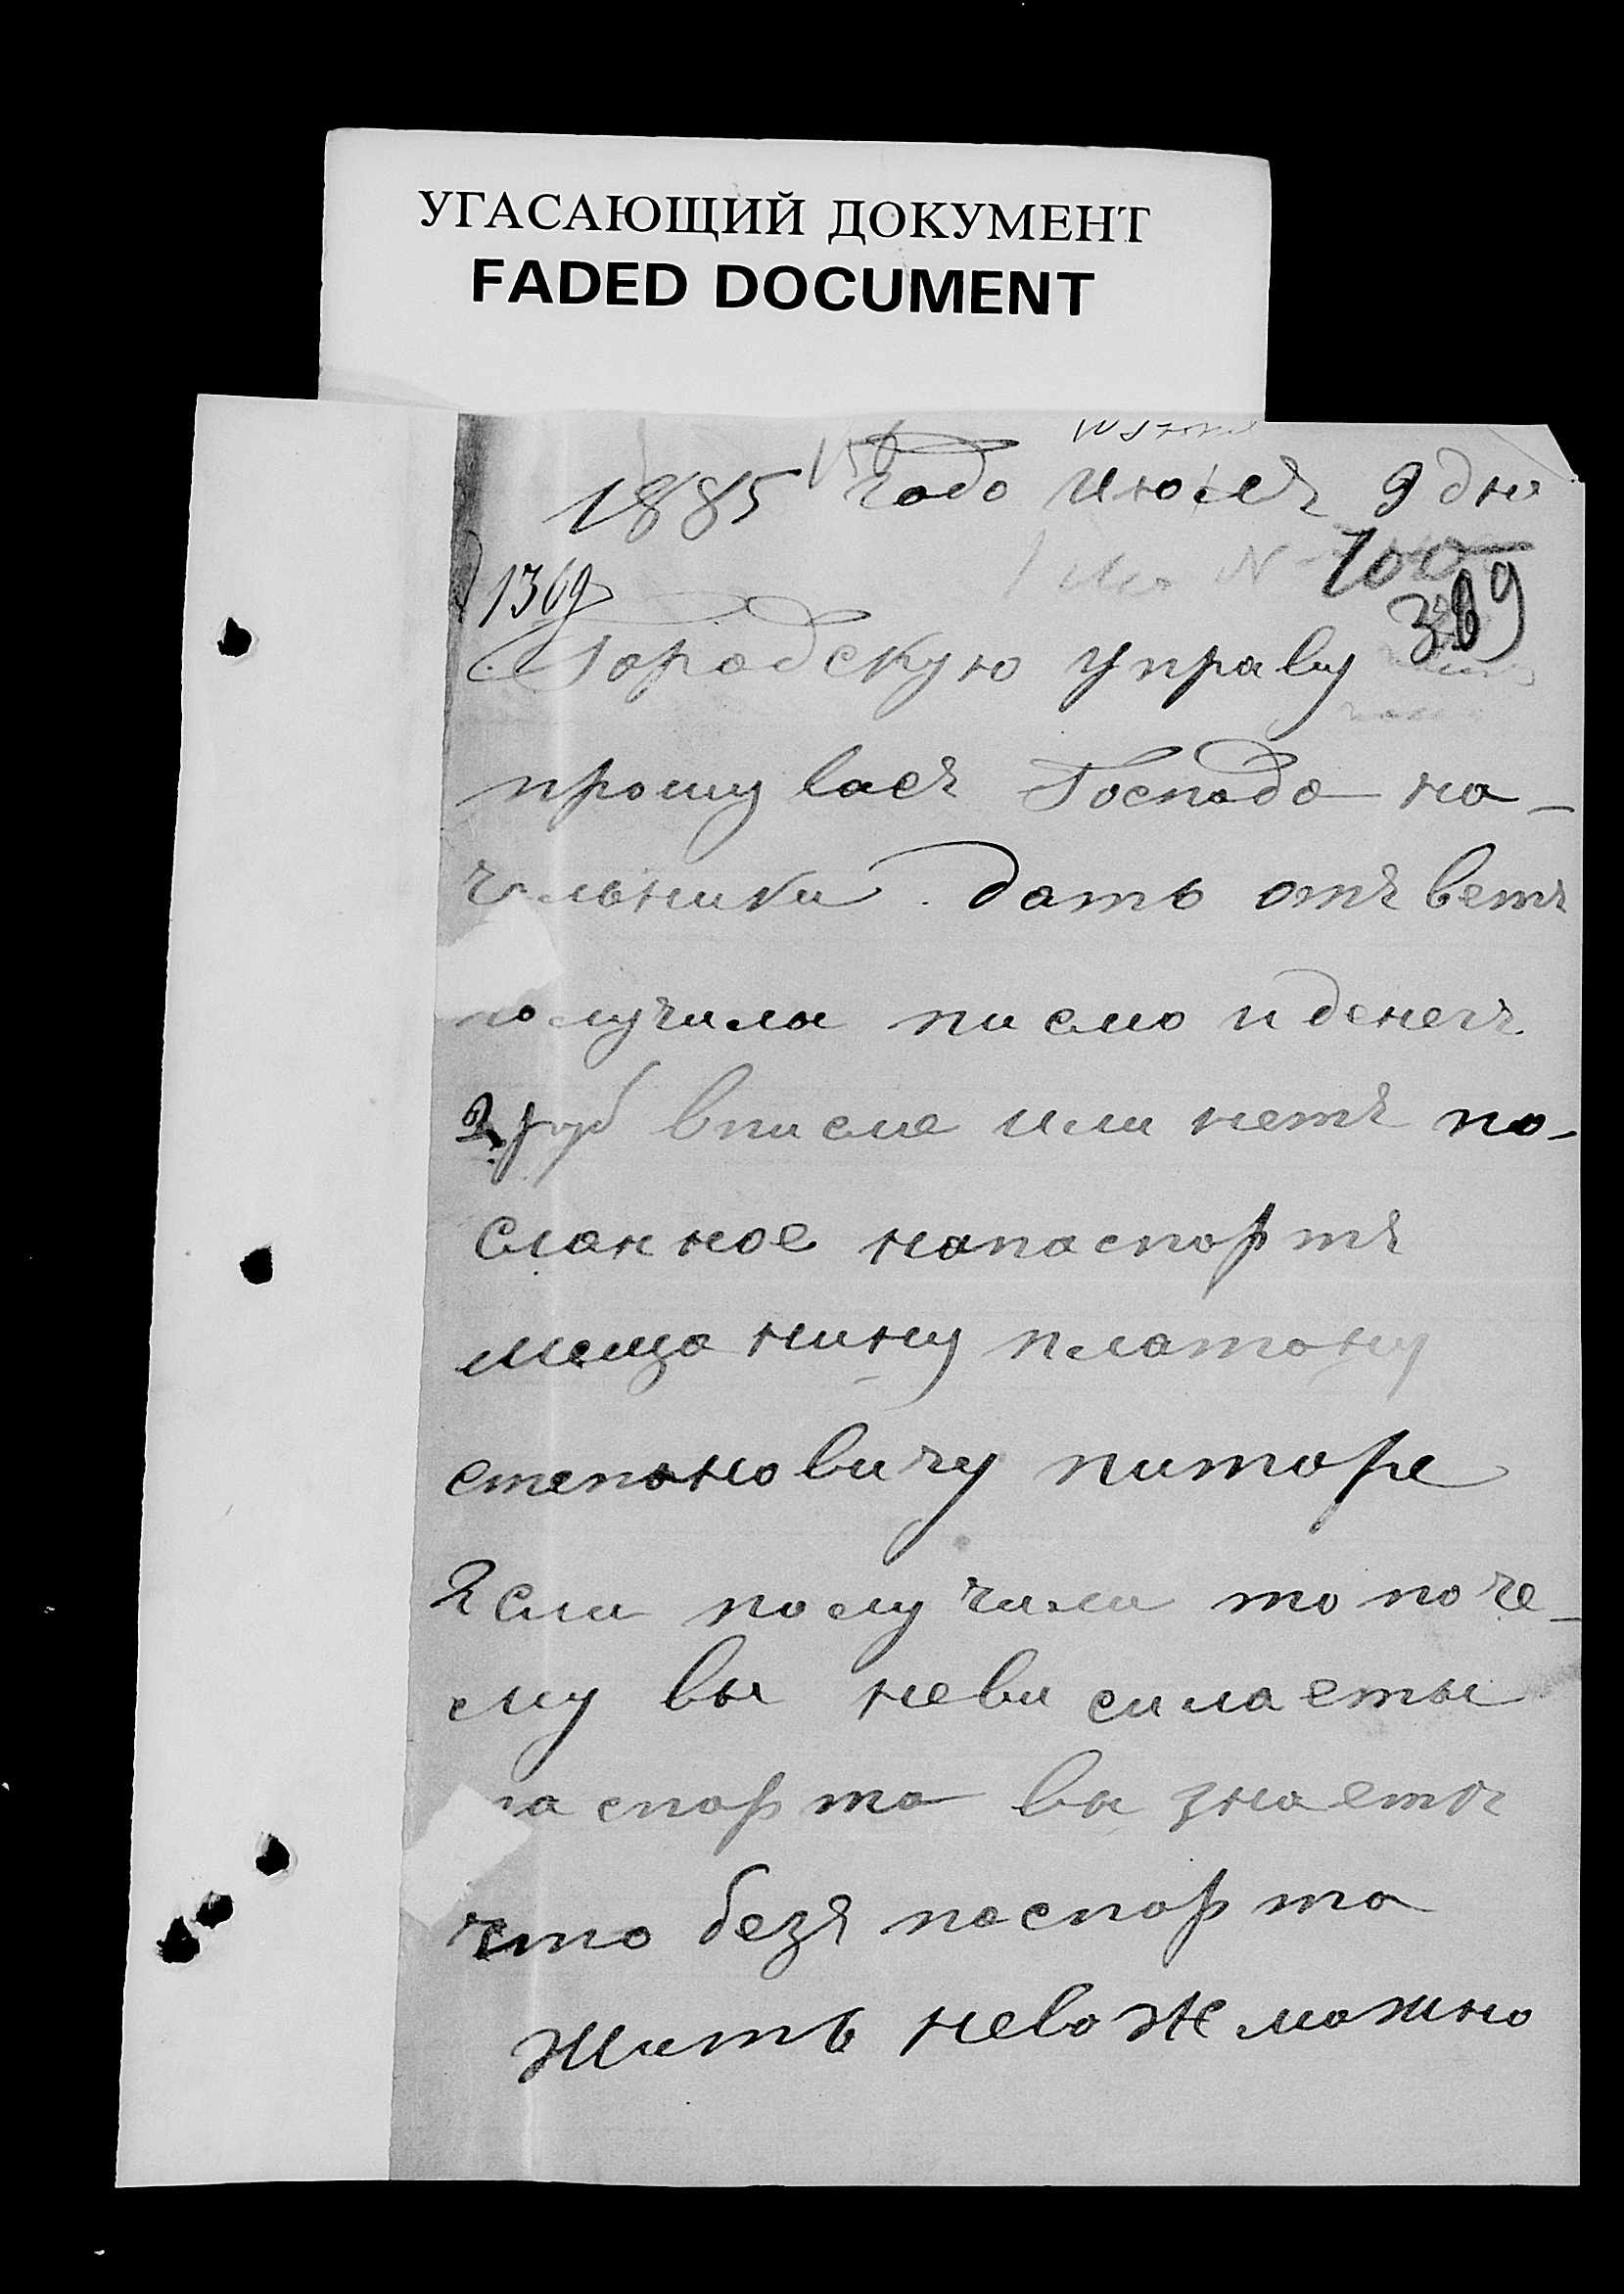 УГАСАЮЩИЙ ДОКУМЕНТ
FADED DOCUMENT
1885 годо июля 9 дня
100
1369
369
Городскую управу
прошу васъ Господо на-
чальники дать отъветъ
получили писмо и денегъ
2 руб вписме или нетъ по-
сланное напаспортъ
мещанину платону
степановичу питоре
Если получили то поче-
му вы невисилаеты
паспорта вы знаете
что безъ паспорта
жить невожможно